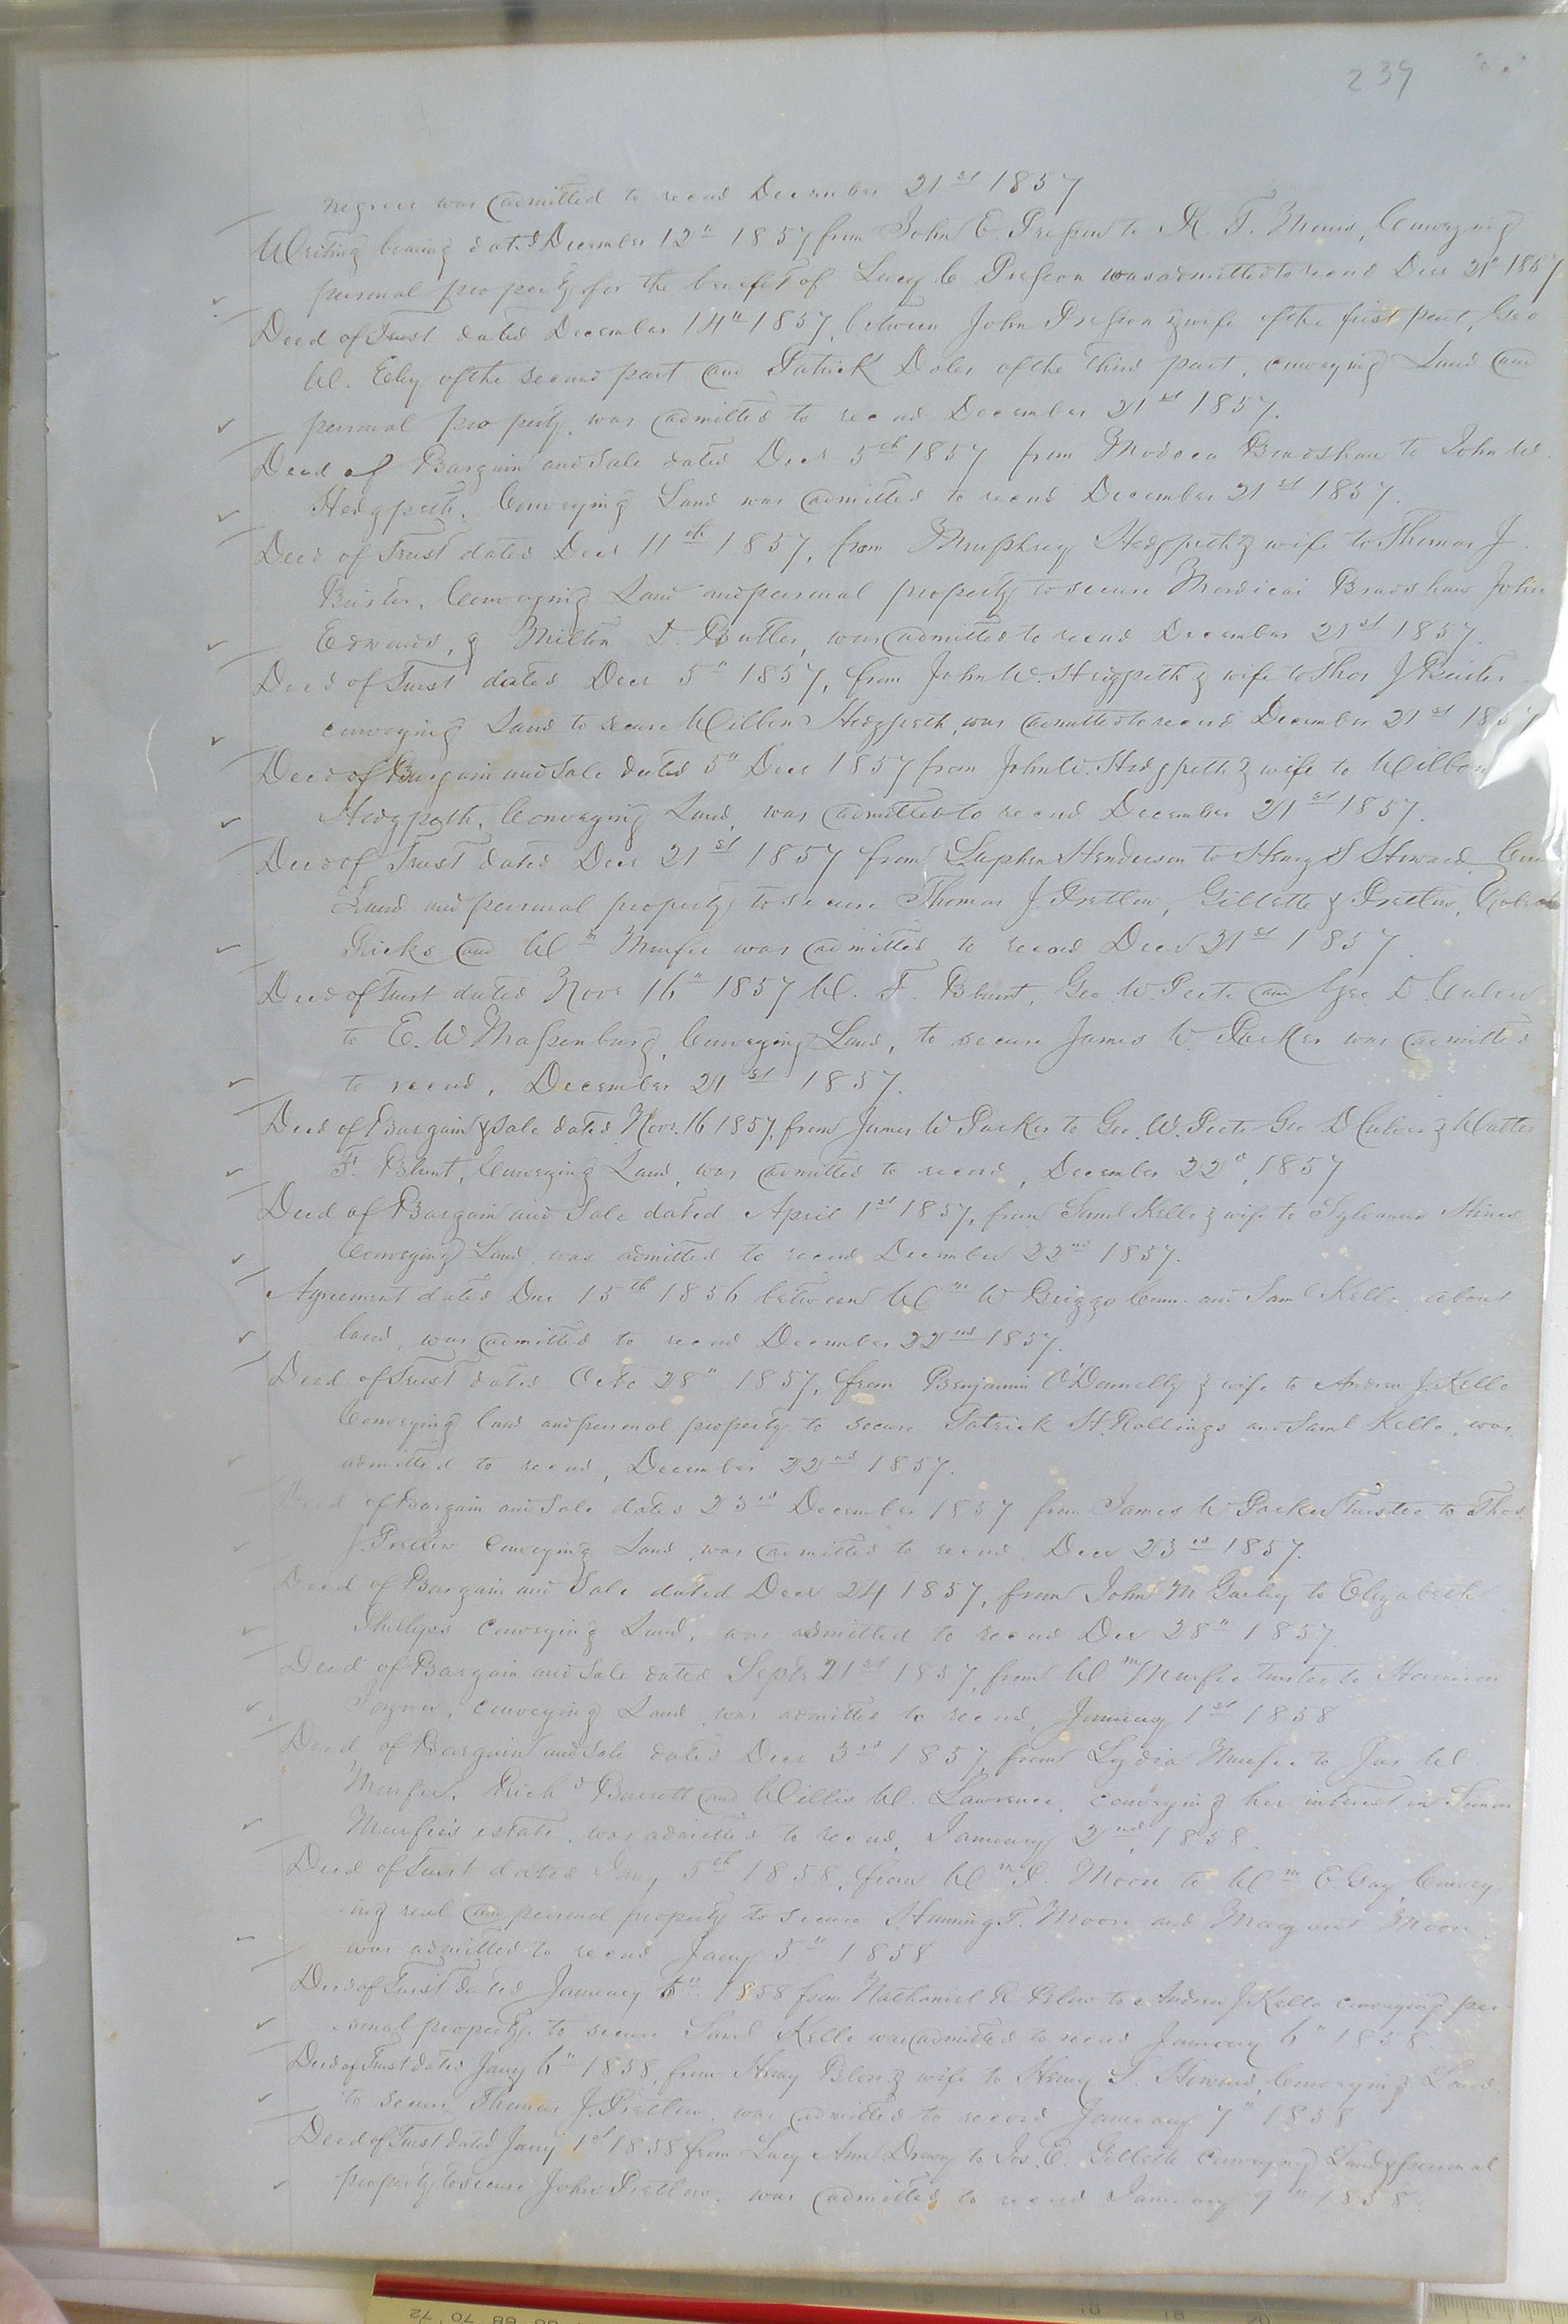 239
negroes was admitted to record December 21st 1857
Writing bearing dated December 12" 1857 from John E. Presson to R. T. Conveying
personal property for the benefit of Lucy C Presson was admitted to record Decr 21st 1857
Deed of Trust dated December 14" 1857, between John Presson & wife of the first part, Geo
W. Eley of the second part and Patrick Doles of the third part, conveying Land and
personal property, was admitted to record December 21st 1857.
Deed of Bargain and Sale dated Decr 5th 1857 from Bradshaw to John W.
Hedgpeth, Conveying Land was admitted to record December 21st 1857.
Deed of Trust dated Decr 11th 1857, from Hedgpeth & wife to Thomas J.
Conveying Land and personal property to secure Mordicai Bradshaw John
Edwards, & Milton Butler, was admitted to record December 21st 1857.
Deed of Trust dated Decr 5" 1857, from John W. Hedgpeth & wife to Thos J
conveying Land to secure Hedgpeth, was admitted to record December 21st 1857
Deed of Bargain and Sale dated 5" Decr 1857 from John W. Hedgpeth & wife to
Hedgpeth, Conveying Land, was admitted to record December 21st 1857.
Deed of Trust dated Decr 21st 1857 from Stephen Henderson to Henry S
Land and personal property to secure Thomas J. Pretlow, Gillette & Pretlow, Robert
Ricks and Wm Murfee was admitted to record Decr 21st 1857.
Deed of Trust dated Novr 16" 1857 W. F. Blunt, Geo W. Peete and Geo. D.
to E. W Massenburg, Conveying Land, to secure James W. Parker was admitted
to record, December 21st 1857.
Deed of Bargain & Sale dated Novr. 16 1857, from James W Parker to Geo. W. Peete Geo D &
F. Blunt, Conveying Land, was admitted to record, December 22d, 1857
Deed of Bargain and Sale dated April 1st 1857, from Saml Kello & wife to Sylvanus Hines
Conveying Land was admitted to record December 22nd 1857.
Agreement dated 15th 1856 between Wm W Briggs Comr. and Saml Kello about
land, was admitted to record December 22nd 1857.
Deed of Trust dated Octo 28" 1857, from Benjamin O'Donnelly & wife to Andrew J. Kello
Conveying land and personal property to secure Patrick H. Rollings and Saml Kello, was
admitted to record, December 22nd 1857.
Deed of Bargain and Sale dated 23rd December 1857 from James W Parker Trustee to Thos.
J. Pretlow Conveying Land, was admitted to record Decr 23rd 1857.
Deed of Bargain and Sale dated Decr 24 1857, from John M Gurley to Elizabeth
Phillips Conveying Land, was admitted to record Dec 28" 1857.
Deed of Bargain and Sale dated Septr 21st 1857, from Wm Murfee trustee to
Joyner, Conveying Land, was admitted to record, January 1st 1858
Deed of Bargain and Sale dated Decr 3rd 1857, from Lydia Murfee to Jas W
Murfee, Richd Barrett and Willis W. Lawrence, conveying her interest in Simon
Murfee's estate, was admitted to record, January 2nd, 1858.
Deed of Trust dated Jany 5th 1858, from Wm Moore to Wm E. Gay, Convey-
ing real and personal property to secure T. Moore and Margaret Moore
was admitted to record Jany 5" 1858
Deed of Trust dated January 6" 1858 from Nathaniel R Blow to Andrew J Kello conveying per-
sonal property, to secure Saml Kello was admitted to record January 6" 1858.
Deed of Trust dated Jany 6" 1858, from Henry Blow & wife to Henry S. Conveying Land
to secure Thomas J. Pretlow, was admitted to record January 7" 1858
Deed of Trust dated Jany 1st 1858 from Lucy Ann Drewry to Jos. E. Gillette Conveying Land & personal
property to secure John Pretlow, was admitted to record January 9" 1858.